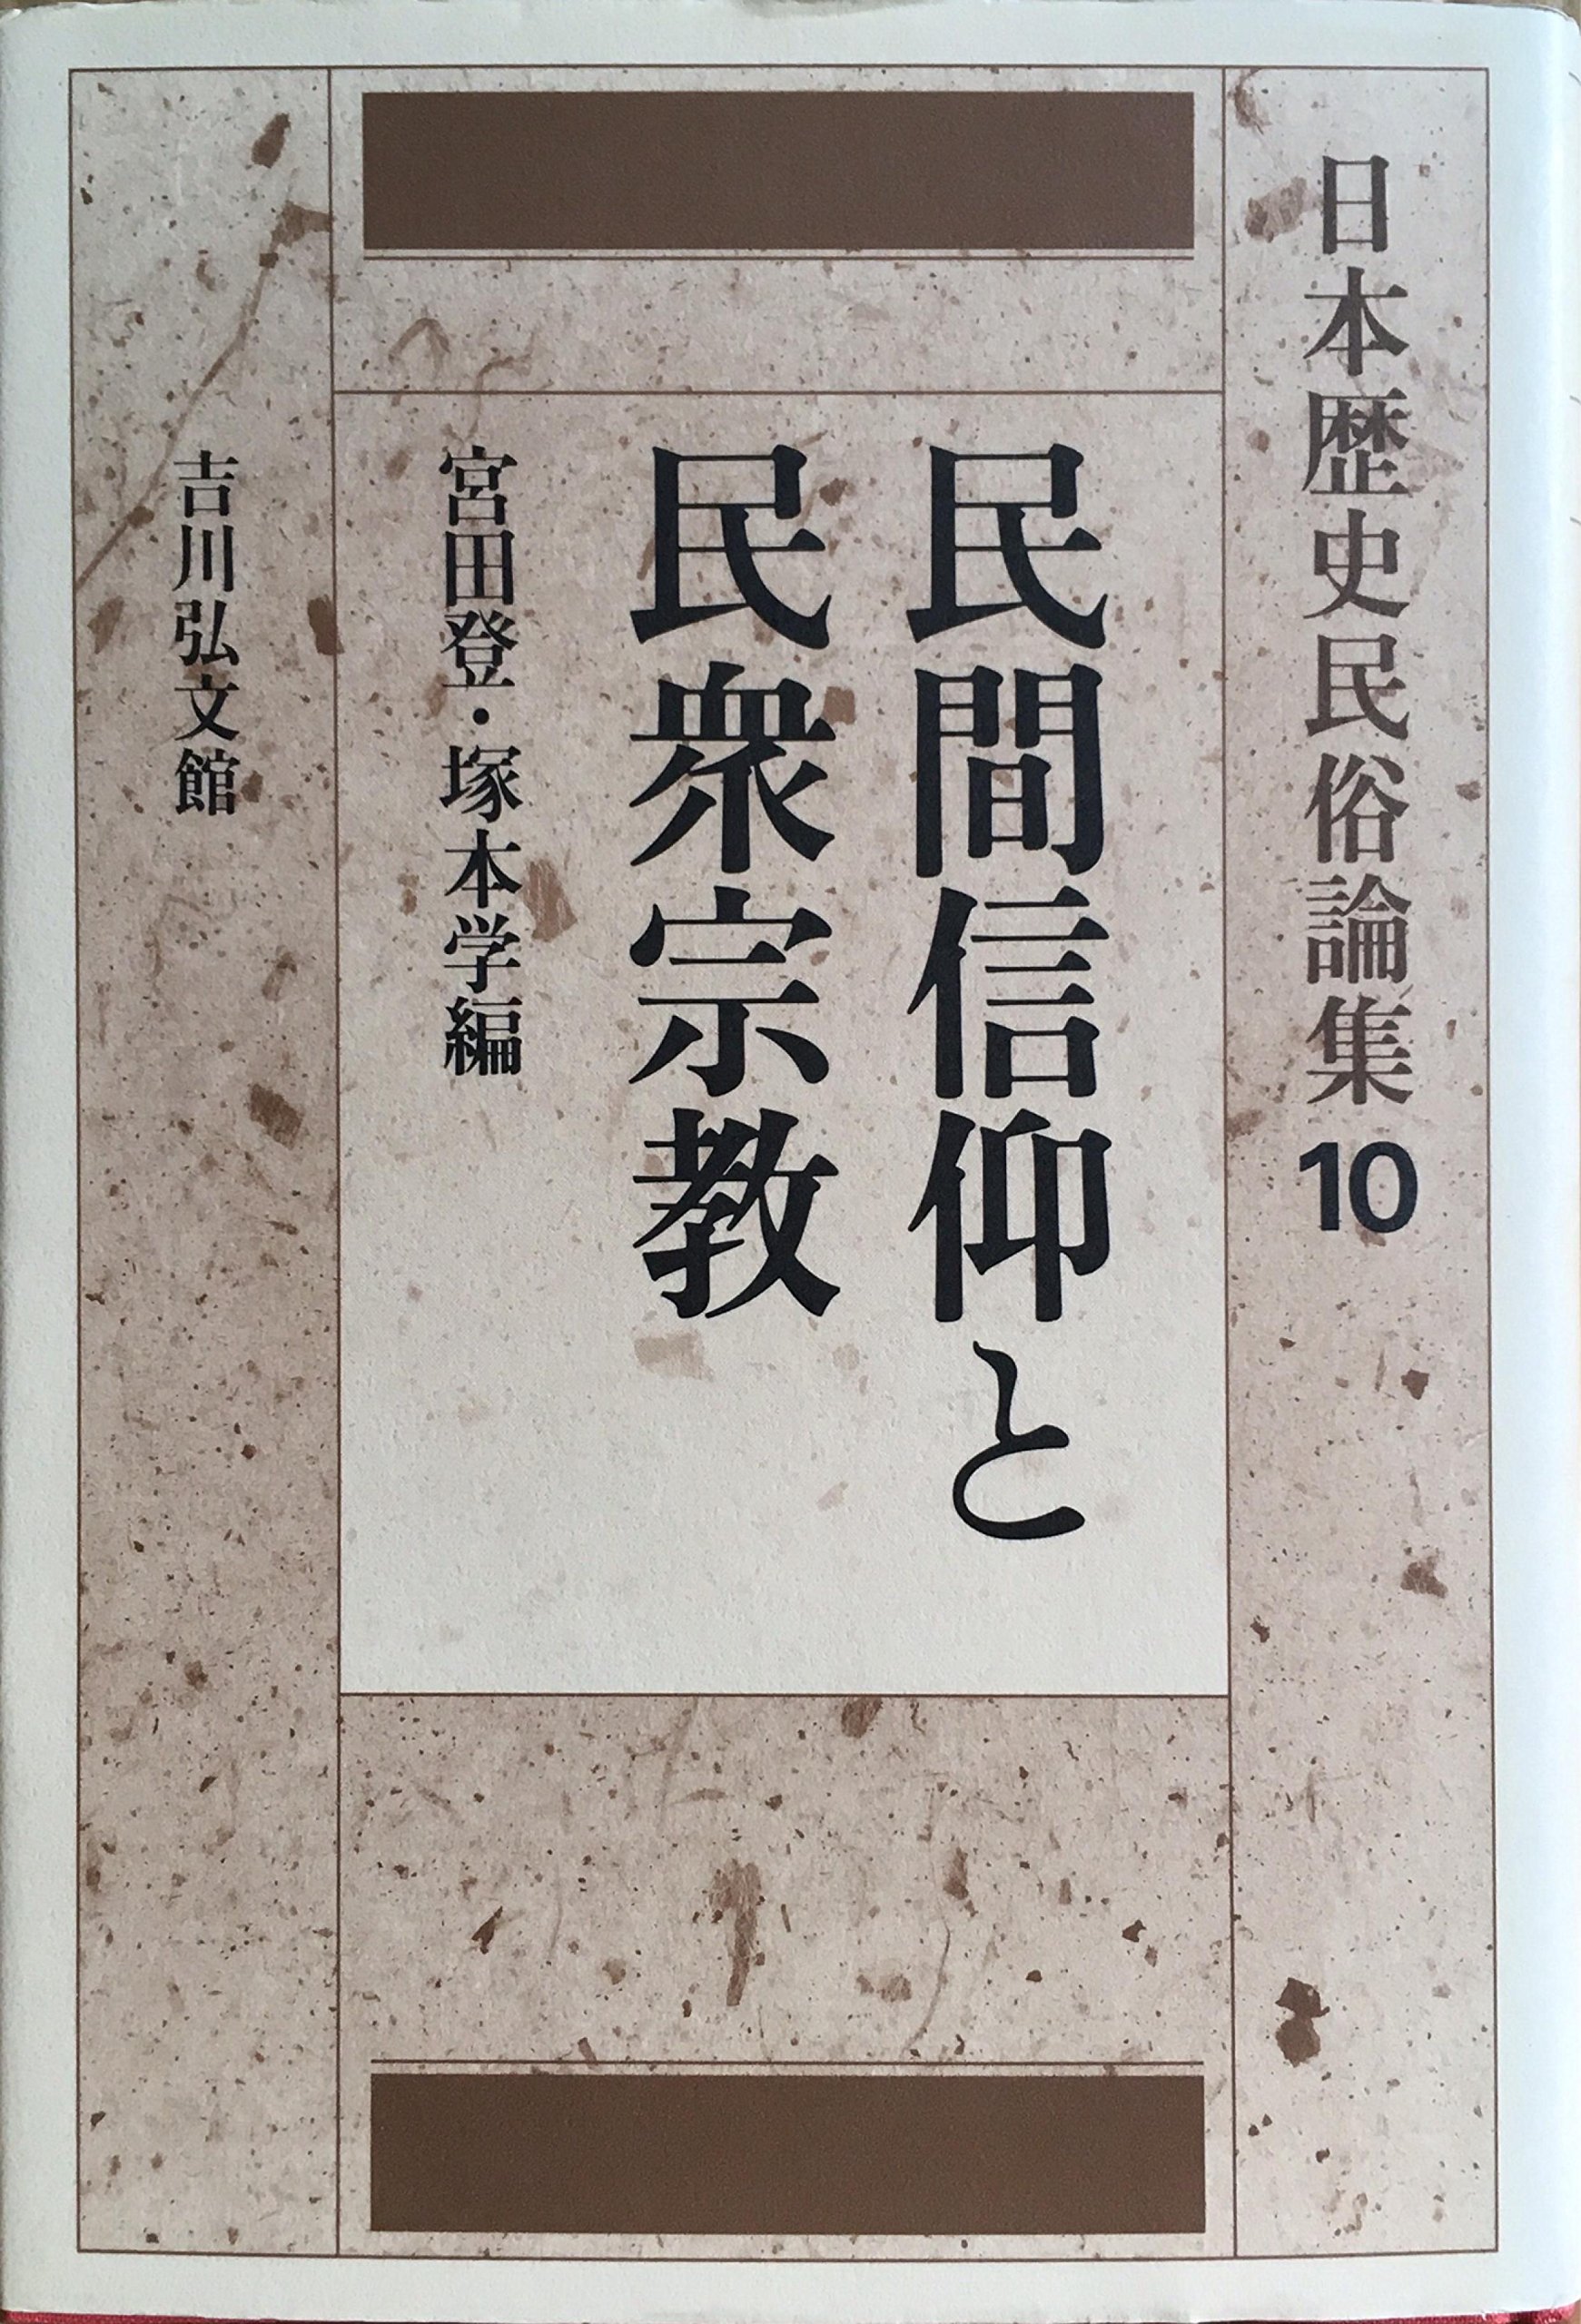 日本歴史民俗論集10
民間信仰と
民衆宗教
宮田登・塚本学編
吉川弘文館